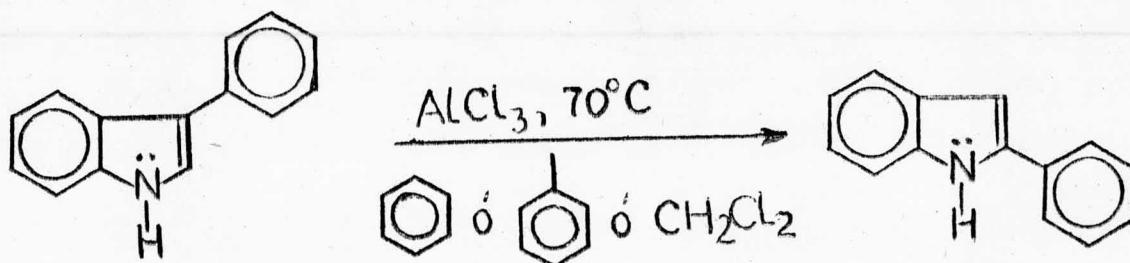 AlCl₃, 70°C
ó ó CH₂Cl₂
N̈ N̈
H H